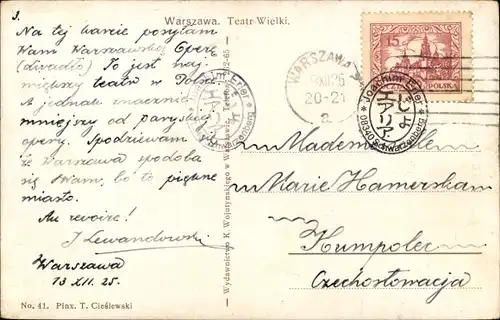 3.
Warszawa. Teatr Wielki.
Na tej karcie posyłam
Wam Warszawską Operę
(divadlo) To jest naj-
większy teatr w Polsce
A jednak znacznie
mniejszy od paryskiej
opery. Spodziewam
że Warszawa spodoba
się Wam, bo to piękne
miasto.
Au revoire!
J Lewandowski
Warszawa
13 XII. 25.
No. 41. Pinx. T. Cieślewski
Wydawnictwo K. Wojutyńskiego w Warszawie, Telefon 22-65
Joachim Erler
08340 Schwarzenberg
WARSZAWA
XII 26
20-21
a
15
POLSKA
Joachim Erler
08340 Schwarzenberg
Mademoiselle
Marie Hamerskam
Humpolec
Czechosłowacja